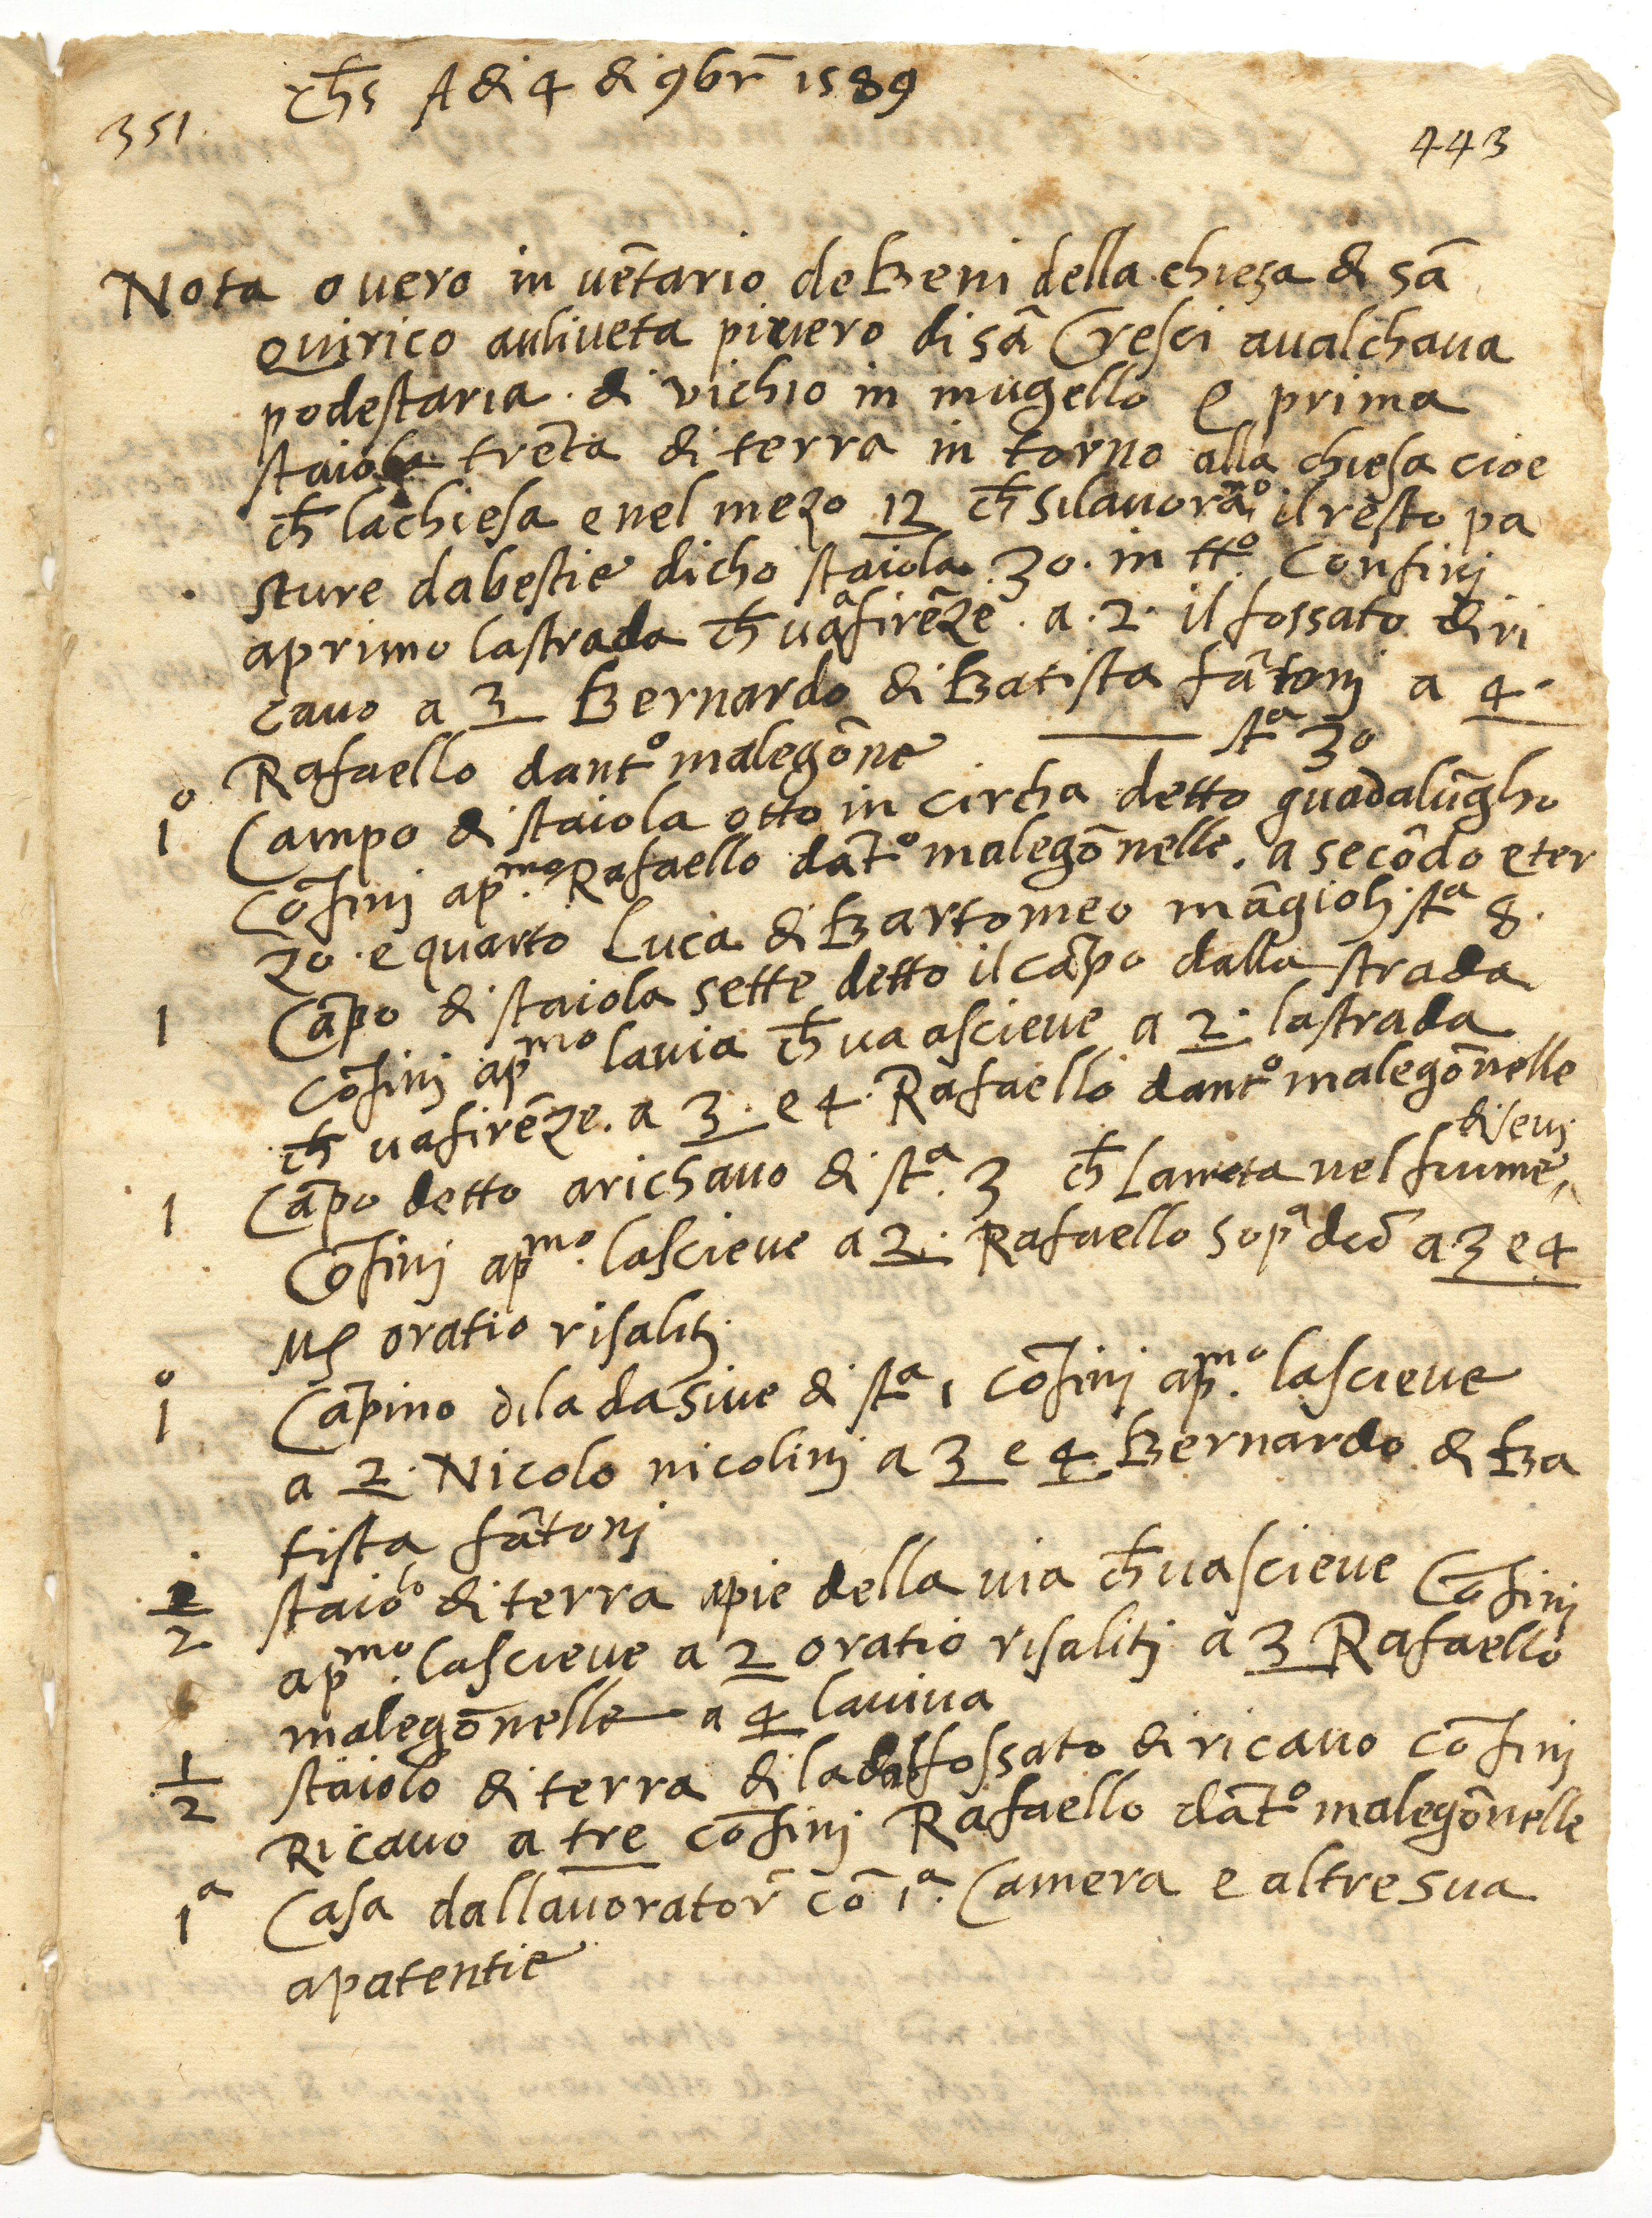 yħs A di 4 di 9br̃ 1589
351.
443
Nota overo in uẽtario de Beni della chiesa di sã
quirico auliueta piuuero di sã Cresci aualchaua
podestaria. di vichio in mugello e prima
staiola trẽta di terra in torno alla chiesa cioe
cħ lachiesa e nel mezo 12 cħ silauorãº il resto pa
sture dabestie dicho staiola. 30. in ttº. Confinj
aprimo lastrada cħ uaᵃfirẽze. a. 2. il fossato di ri
cauo a 3 Bernardo di Batista fãtonj a 4.
Rafaello dantº malegõne stᵃ 30
1º Campo di staiola otto in circha detto guadalũgho
cõfinj apᵐº. Rafaello dãtº malegõnelle. a secõdo e ter
zo. e quarto Luca di Bartomeo mãgiolj stᵃ 8.
1 Cãpo di staiola sette detto il cãpo dalla strada
cõfinj apᵐº lauia cħ ua ascieue a 2. lastrada
cħ uafirẽze. a 3. e 4. Rafaello dantº malegõnelle
diseuj
1 Cãpo detto arichauo di stᵃ. 3 cħ Lameta nel fiume
Cõfinj apᵐº. lascieue a 2. Rafaello sopᵃ dcõ a 3 e 4
Mʃ oratio risalitj
1º Cãpino dila dasiue di stᵃ 1 cõfinj apᵐº. lascieue
a 2. Nicolo nicolinj a 3 e 4 Bernardo di Ba
tista fãtonj
1/2 staioˡº di terra apie della uia cħ uascieue Cõfinj
apᵐº. lascieue a 2 oratio risalitj a 3 Rafaello
malegõnelle a 4 lauiua
1/2 staiolo di terra di la dalfossato di ricauo cõfinj
Ricauo a tre cõfinj Rafaello dãtº malegõnelle
1ᵃ Casa dallauorator̃ cõ 1ᵃ. Camera e altre sua
apatentie